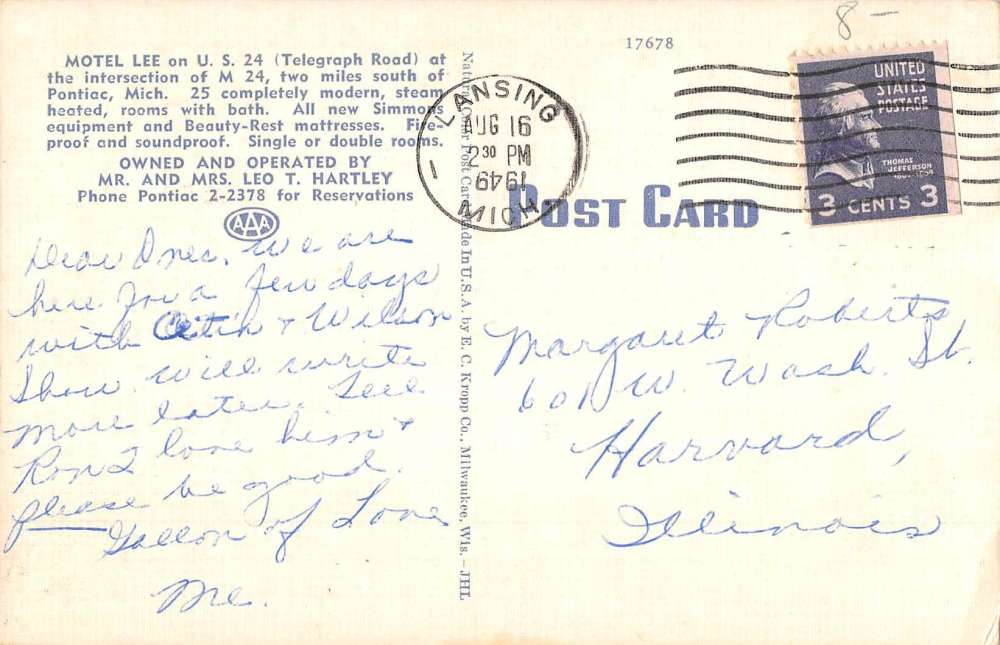 8-
17678
MOTEL LEE on U. S. 24 (Telegraph Road) at
the intersection of M 24, two miles south of
Pontiac, Mich. 25 completely modern, steam
heated, rooms with bath. All new Simmons
equipment and Beauty-Rest mattresses. Fire-
proof and soundproof. Single or double rooms.
OWNED AND OPERATED BY
MR. AND MRS. LEO T. HARTLEY
Phone Pontiac 2-2378 for Reservations
AAA
Dear Ones, We are
here for a few days
with & Wilson
Show. will write
more later. Tell
Ron I love him &
please be good.
Gallon of Love
Me.
Natural Color Post Card Made In U. S. A. by E. C. Kropp Co., Milwaukee, Wis.-JHL
LANSING
AUG 16
2 30 PM
1949
MICH
POST CARD
UNITED
STATES
POSTAGE
THOMAS
JEFFERSON
3 CENTS 3
Margaret Roberts
601 W. Wash. St.
Harvard,
Illinois